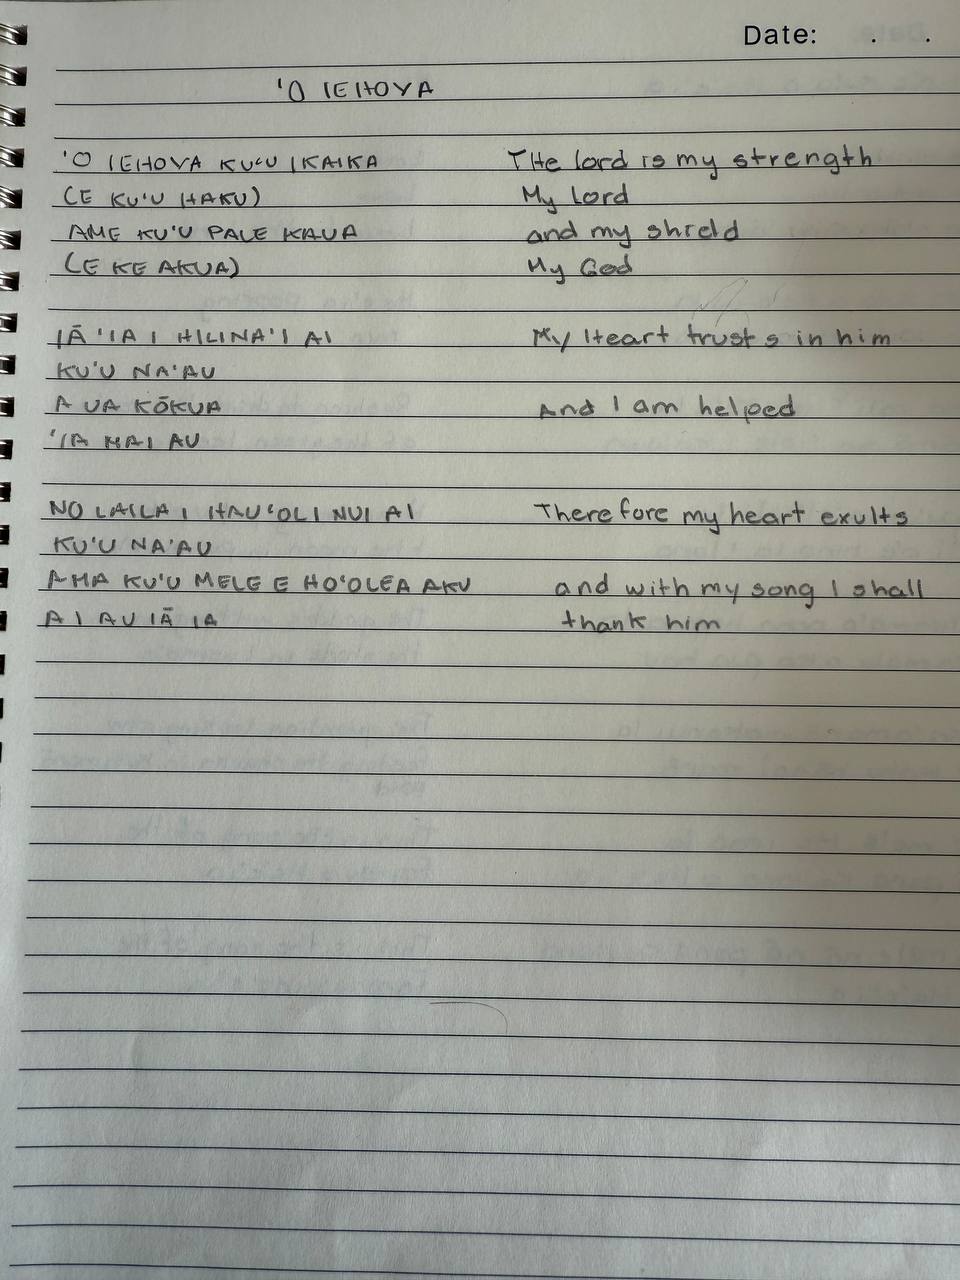 Date: . .
'O IEHOVA
'O IEHOVA KU'U IKAIKA The lord is my strength
(E KU'U HAKU) My Lord
AME KU'U PALE KAUA and my shield
(E KE AKUA) My God
IĀ 'IA I HILINA'I AI My Heart trusts in him
KU'U NA'AU
A UA KŌKUA And I am helped
'IA MAI AU
NO LAILA I HAU'OLI NUI AI Therefore my heart exults
KU'U NA'AU
AMA KU'U MELE E HO'OLEA AKU and with my song I shall
AI AU IĀ IA thank him